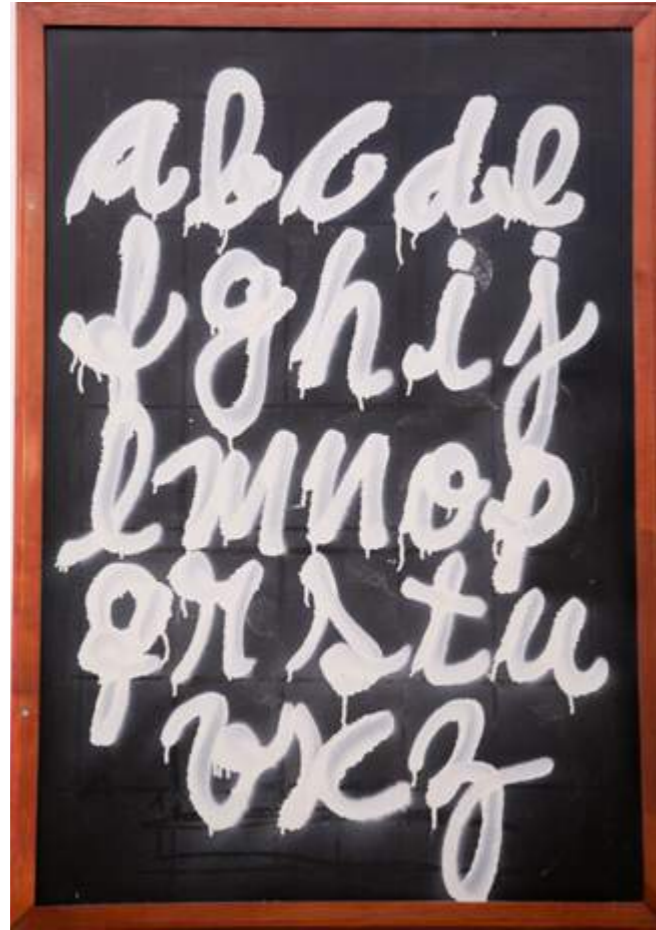 abcde
fghij
lmnop
qrstu
vxz